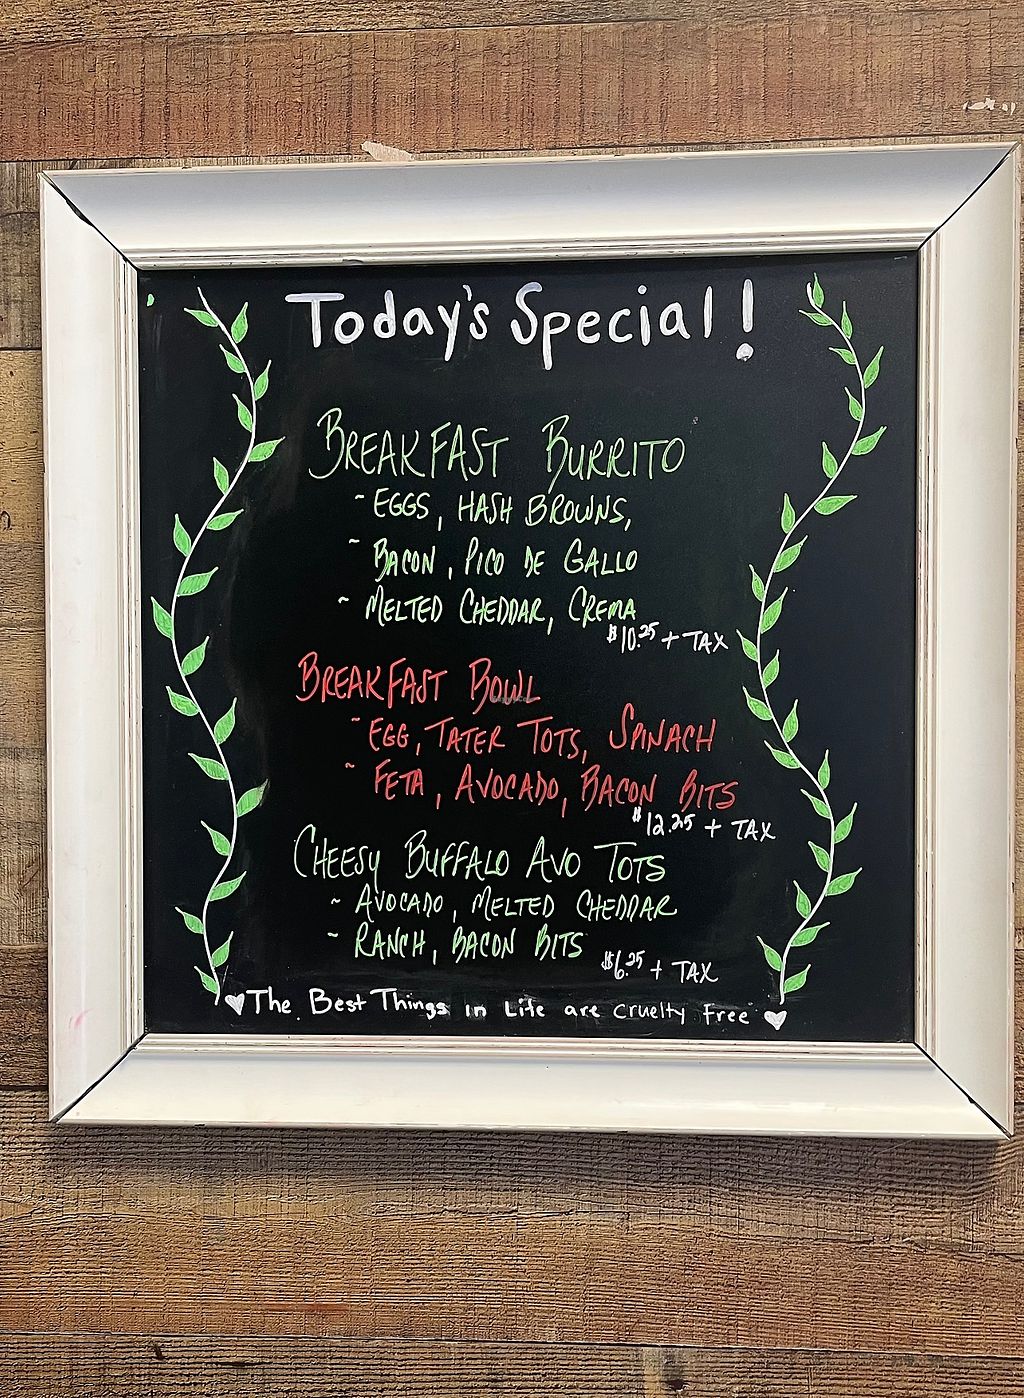 Today's Special!
BREAKFAST BURRITO
~ EGGS, HASH BROWNS,
~ BACON, PICO DE GALLO
~ MELTED CHEDDAR, CREMA
$10.25 + TAX
BREAKFAST BOWL
~ EGG, TATER TOTS, SPINACH
~ FETA, AVOCADO, BACON BITS
$12.25 + TAX
CHEESY BUFFALO AVO TOTS
~ AVOCADO, MELTED CHEDDAR
~ RANCH, BACON BITS
$6.25 + TAX
The Best Things in Life are cruelty free